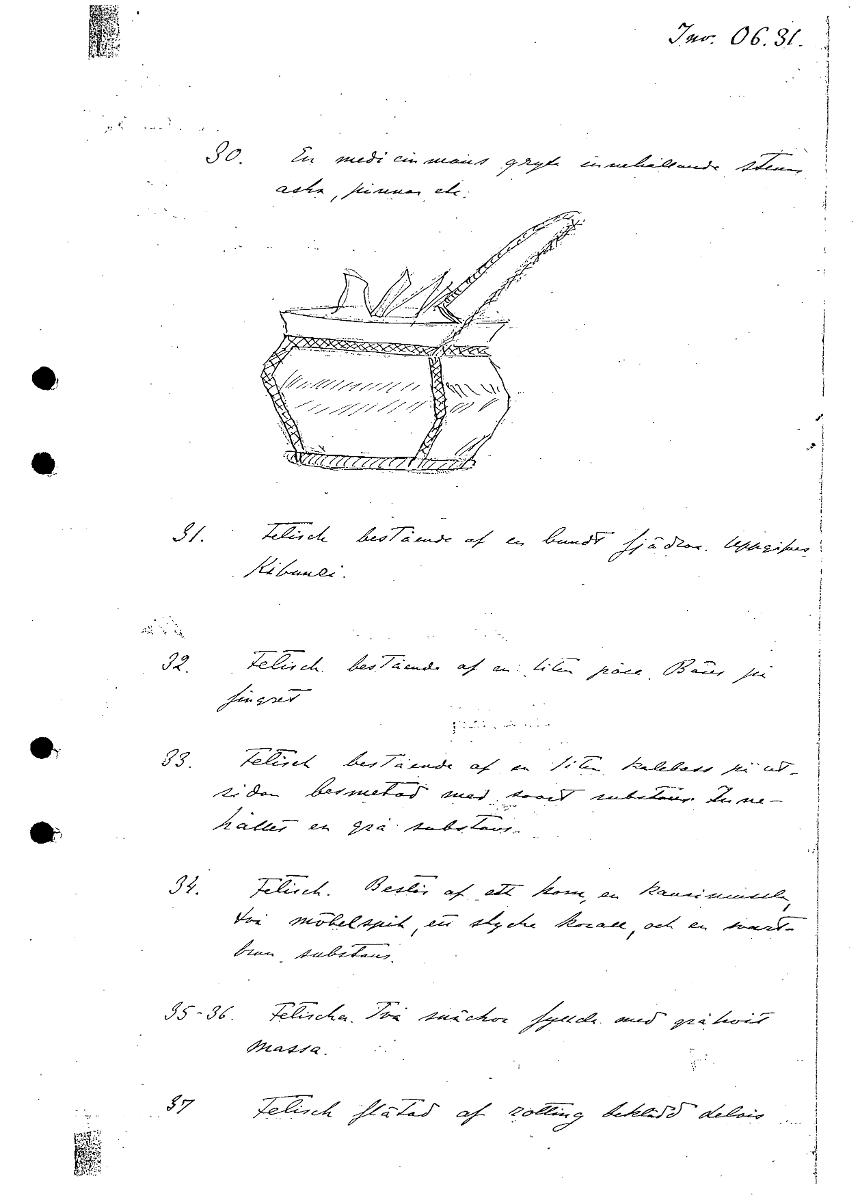 Inv. 06.31.
30. En medicinmans gryta innehållande stenar
aska, pinnar etc.
31. Fetisch bestående af en bundt fjädrar. Uppgifves
32. Fetisch bestående af en liten påse. Bäres på
fingret
33. Fetisch bestående af en liten kalebass på ut-
sidan besmetad med svart substans. Inne-
håller en grå substans.
34. Fetisch. Består af ett horn, en kaurimussla,
två möbelspik, ett stycke korall, och en svart-
brun substans.
35-36. Fetischer. Två snäckor fyllda med gråhvit
massa.
37 Fetisch flätad af rotting beklädd delvis